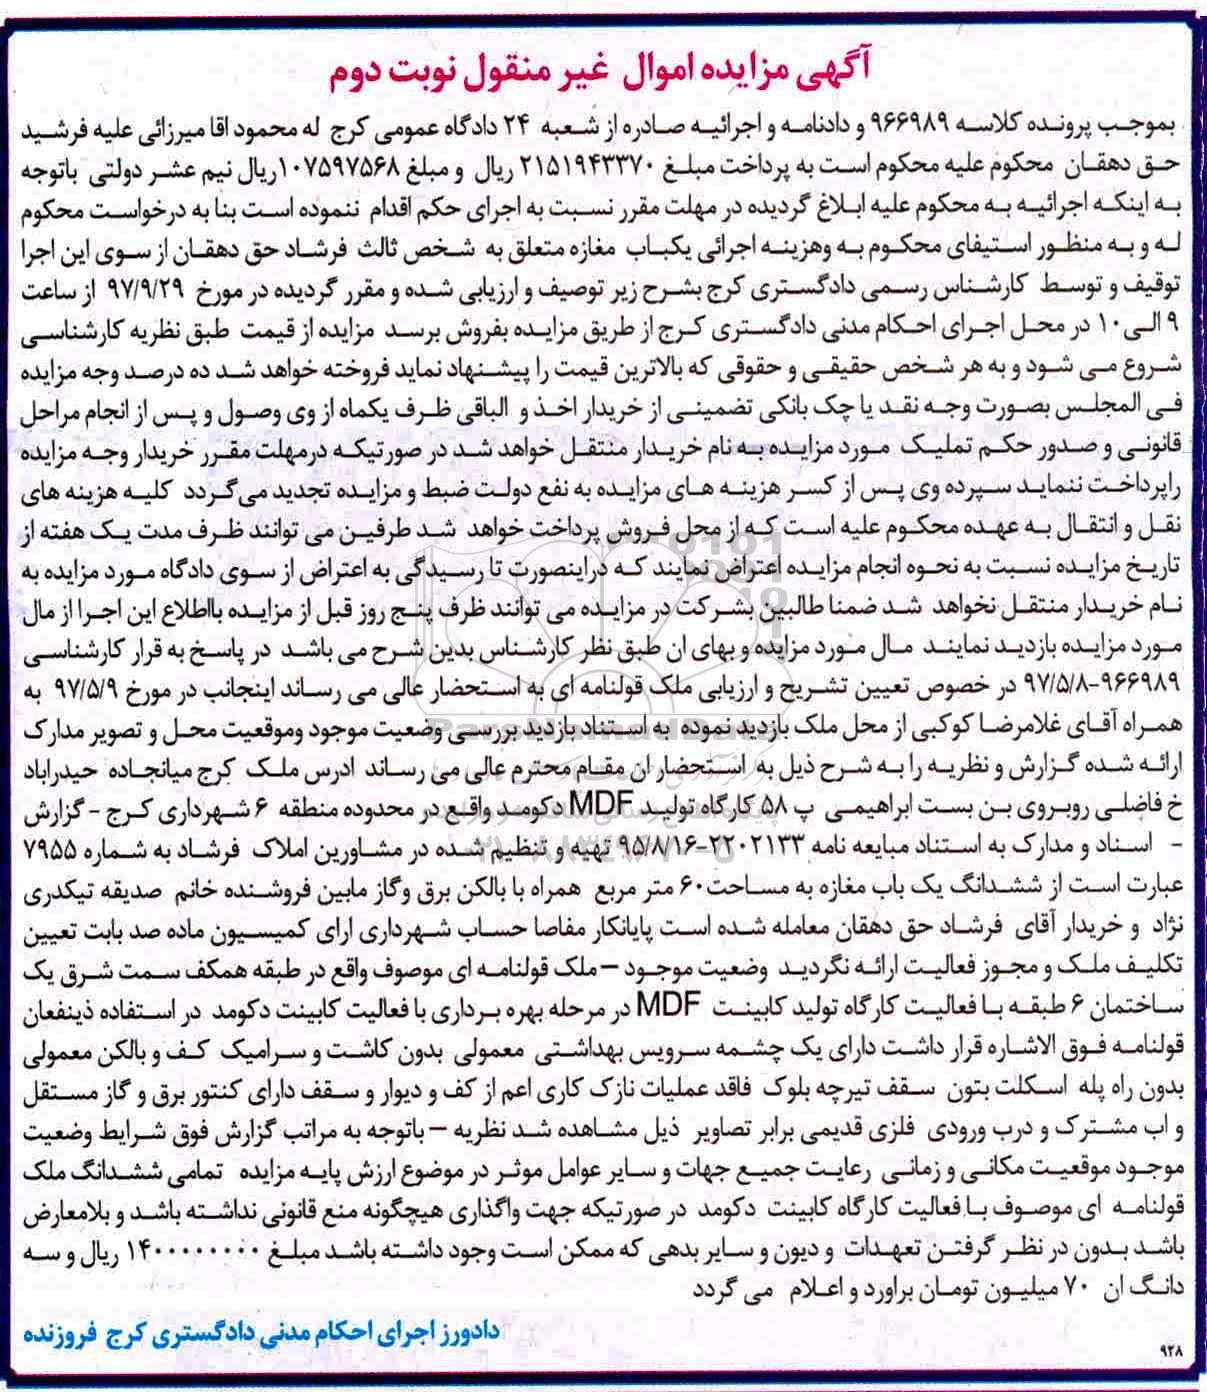 آگهی مزایده اموال غیر منقول نوبت دوم
بموجب پرونده کلاسه ۹۶۶۹۸۹ و دادنامه و اجرائیه صادره از شعبه ۲۴ دادگاه عمومی کرج له محمود اقا میرزائی علیه فرشید
حق دهقان محکوم علیه محکوم است به پرداخت مبلغ ۲۱۵۱۹۴۳۳۷۰ ریال و مبلغ ۱۰۷۵۹۷۵۶۸ریال نیم عشر دولتی باتوجه
به اینکه اجرائیه به محکوم علیه ابلاغ گردیده در مهلت مقرر نسبت به اجرای حکم اقدام ننموده است بنا به درخواست محکوم
له و به منظور استیفای محکوم به وهزینه اجرائی یکباب مغازه متعلق به شخص ثالث فرشاد حق دهقان از سوی این اجرا
توقیف و توسط کارشناس رسمی دادگستری کرج بشرح زیر توصیف و ارزیابی شده و مقرر گردیده در مورخ ۹۷/۹/۲۹ از ساعت
۹ الی۱۰ در محل اجرای احکام مدنی دادگستری کرج از طریق مزایده بفروش برسد مزایده از قیمت طبق نظریه کارشناسی
شروع می شود و به هر شخص حقیقی و حقوقی که بالاترین قیمت را پیشنهاد نماید فروخته خواهد شد ده درصد وجه مزایده
فی المجلس بصورت وجه نقد یا چک بانکی تضمینی از خریدار اخذ و الباقی ظرف یکماه از وی وصول و پس از انجام مراحل
قانونی و صدور حکم تملیک مورد مزایده به نام خریدار منتقل خواهد شد در صورتیکه درمهلت مقرر خریدار وجه مزایده
راپرداخت ننماید سپرده وی پس از کسر هزینه های مزایده به نفع دولت ضبط و مزایده تجدید می‌گردد کلیه هزینه های
نقل و انتقال به عهده محکوم علیه است که از محل فروش پرداخت خواهد شد طرفین می توانند ظرف مدت یک هفته از
تاریخ مزایده نسبت به نحوه انجام مزایده اعتراض نمایند که دراینصورت تا رسیدگی به اعتراض از سوی دادگاه مورد مزایده به
نام خریدار منتقل نخواهد شد ضمنا طالبین بشرکت در مزایده می توانند ظرف پنج روز قبل از مزایده بااطلاع این اجرا از مال
مورد مزایده بازدید نمایند مال مورد مزایده و بهای ان طبق نظر کارشناس بدین شرح می باشد در پاسخ به قرار کارشناسی
۹۶۶۹۸۹-۹۷/۵/۸ در خصوص تعیین تشریح و ارزیابی ملک قولنامه ای به استحضار عالی می رساند اینجانب در مورخ ۹۷/۵/۹ به
همراه آقای غلامرضا کوکبی از محل ملک بازدید نموده به استناد بازدید بررسی وضعیت موجود وموقعیت محل و تصویر مدارک
ارائه شده گزارش و نظریه را به شرح ذیل به استحضار ان مقام محترم عالی می رساند ادرس ملک کرج میانجاده حیدراباد
خ فاضلی روبروی بن بست ابراهیمی پ ۵۸ کارگاه تولید MDF دکومد واقع در محدوده منطقه ۶ شهرداری کرج - گزارش
- اسناد و مدارک به استناد مبایعه نامه ۲۲۰۲۱۳۳-۹۵/۸/۱۶ تهیه و تنظیم شده در مشاورین املاک فرشاد به شماره ۷۹۵۵
عبارت است از ششدانگ یک باب مغازه به مساحت۶۰ متر مربع همراه با بالکن برق وگاز مابین فروشنده خانم صدیقه تیکدری
نژاد و خریدار آقای فرشاد حق دهقان معامله شده است پایانکار مفاصا حساب شهرداری ارای کمیسیون ماده صد بابت تعیین
تکلیف ملک و مجوز فعالیت ارائه نگردید وضعیت موجود –ملک قولنامه ای موصوف واقع در طبقه همکف سمت شرق یک
ساختمان ۶ طبقه با فعالیت کارگاه تولید کابینت MDF در مرحله بهره برداری با فعالیت کابینت دکومد در استفاده ذینفعان
قولنامه فوق الاشاره قرار داشت دارای یک چشمه سرویس بهداشتی معمولی بدون کاشت و سرامیک کف و بالکن معمولی
بدون راه پله اسکلت بتون سقف تیرچه بلوک فاقد عملیات نازک کاری اعم از کف و دیوار و سقف دارای کنتور برق و گاز مستقل
و اب مشترک و درب ورودی فلزی قدیمی برابر تصاویر ذیل مشاهده شد نظریه –باتوجه به مراتب گزارش فوق شرایط وضعیت
موجود موقعیت مکانی و زمانی رعایت جمیع جهات و سایر عوامل موثر در موضوع ارزش پایه مزایده تمامی ششدانگ ملک
قولنامه ای موصوف با فعالیت کارگاه کابینت دکومد در صورتیکه جهت واگذاری هیچگونه منع قانونی نداشته باشد و بلامعارض
باشد بدون در نظر گرفتن تعهدات و دیون و سایر بدهی که ممکن است وجود داشته باشد مبلغ ۱۴۰۰۰۰۰۰۰۰ ریال و سه
دانگ ان ۷۰ میلیون تومان براورد و اعلام می گردد
دادورز اجرای احکام مدنی دادگستری کرج فروزنده
۹۲۸